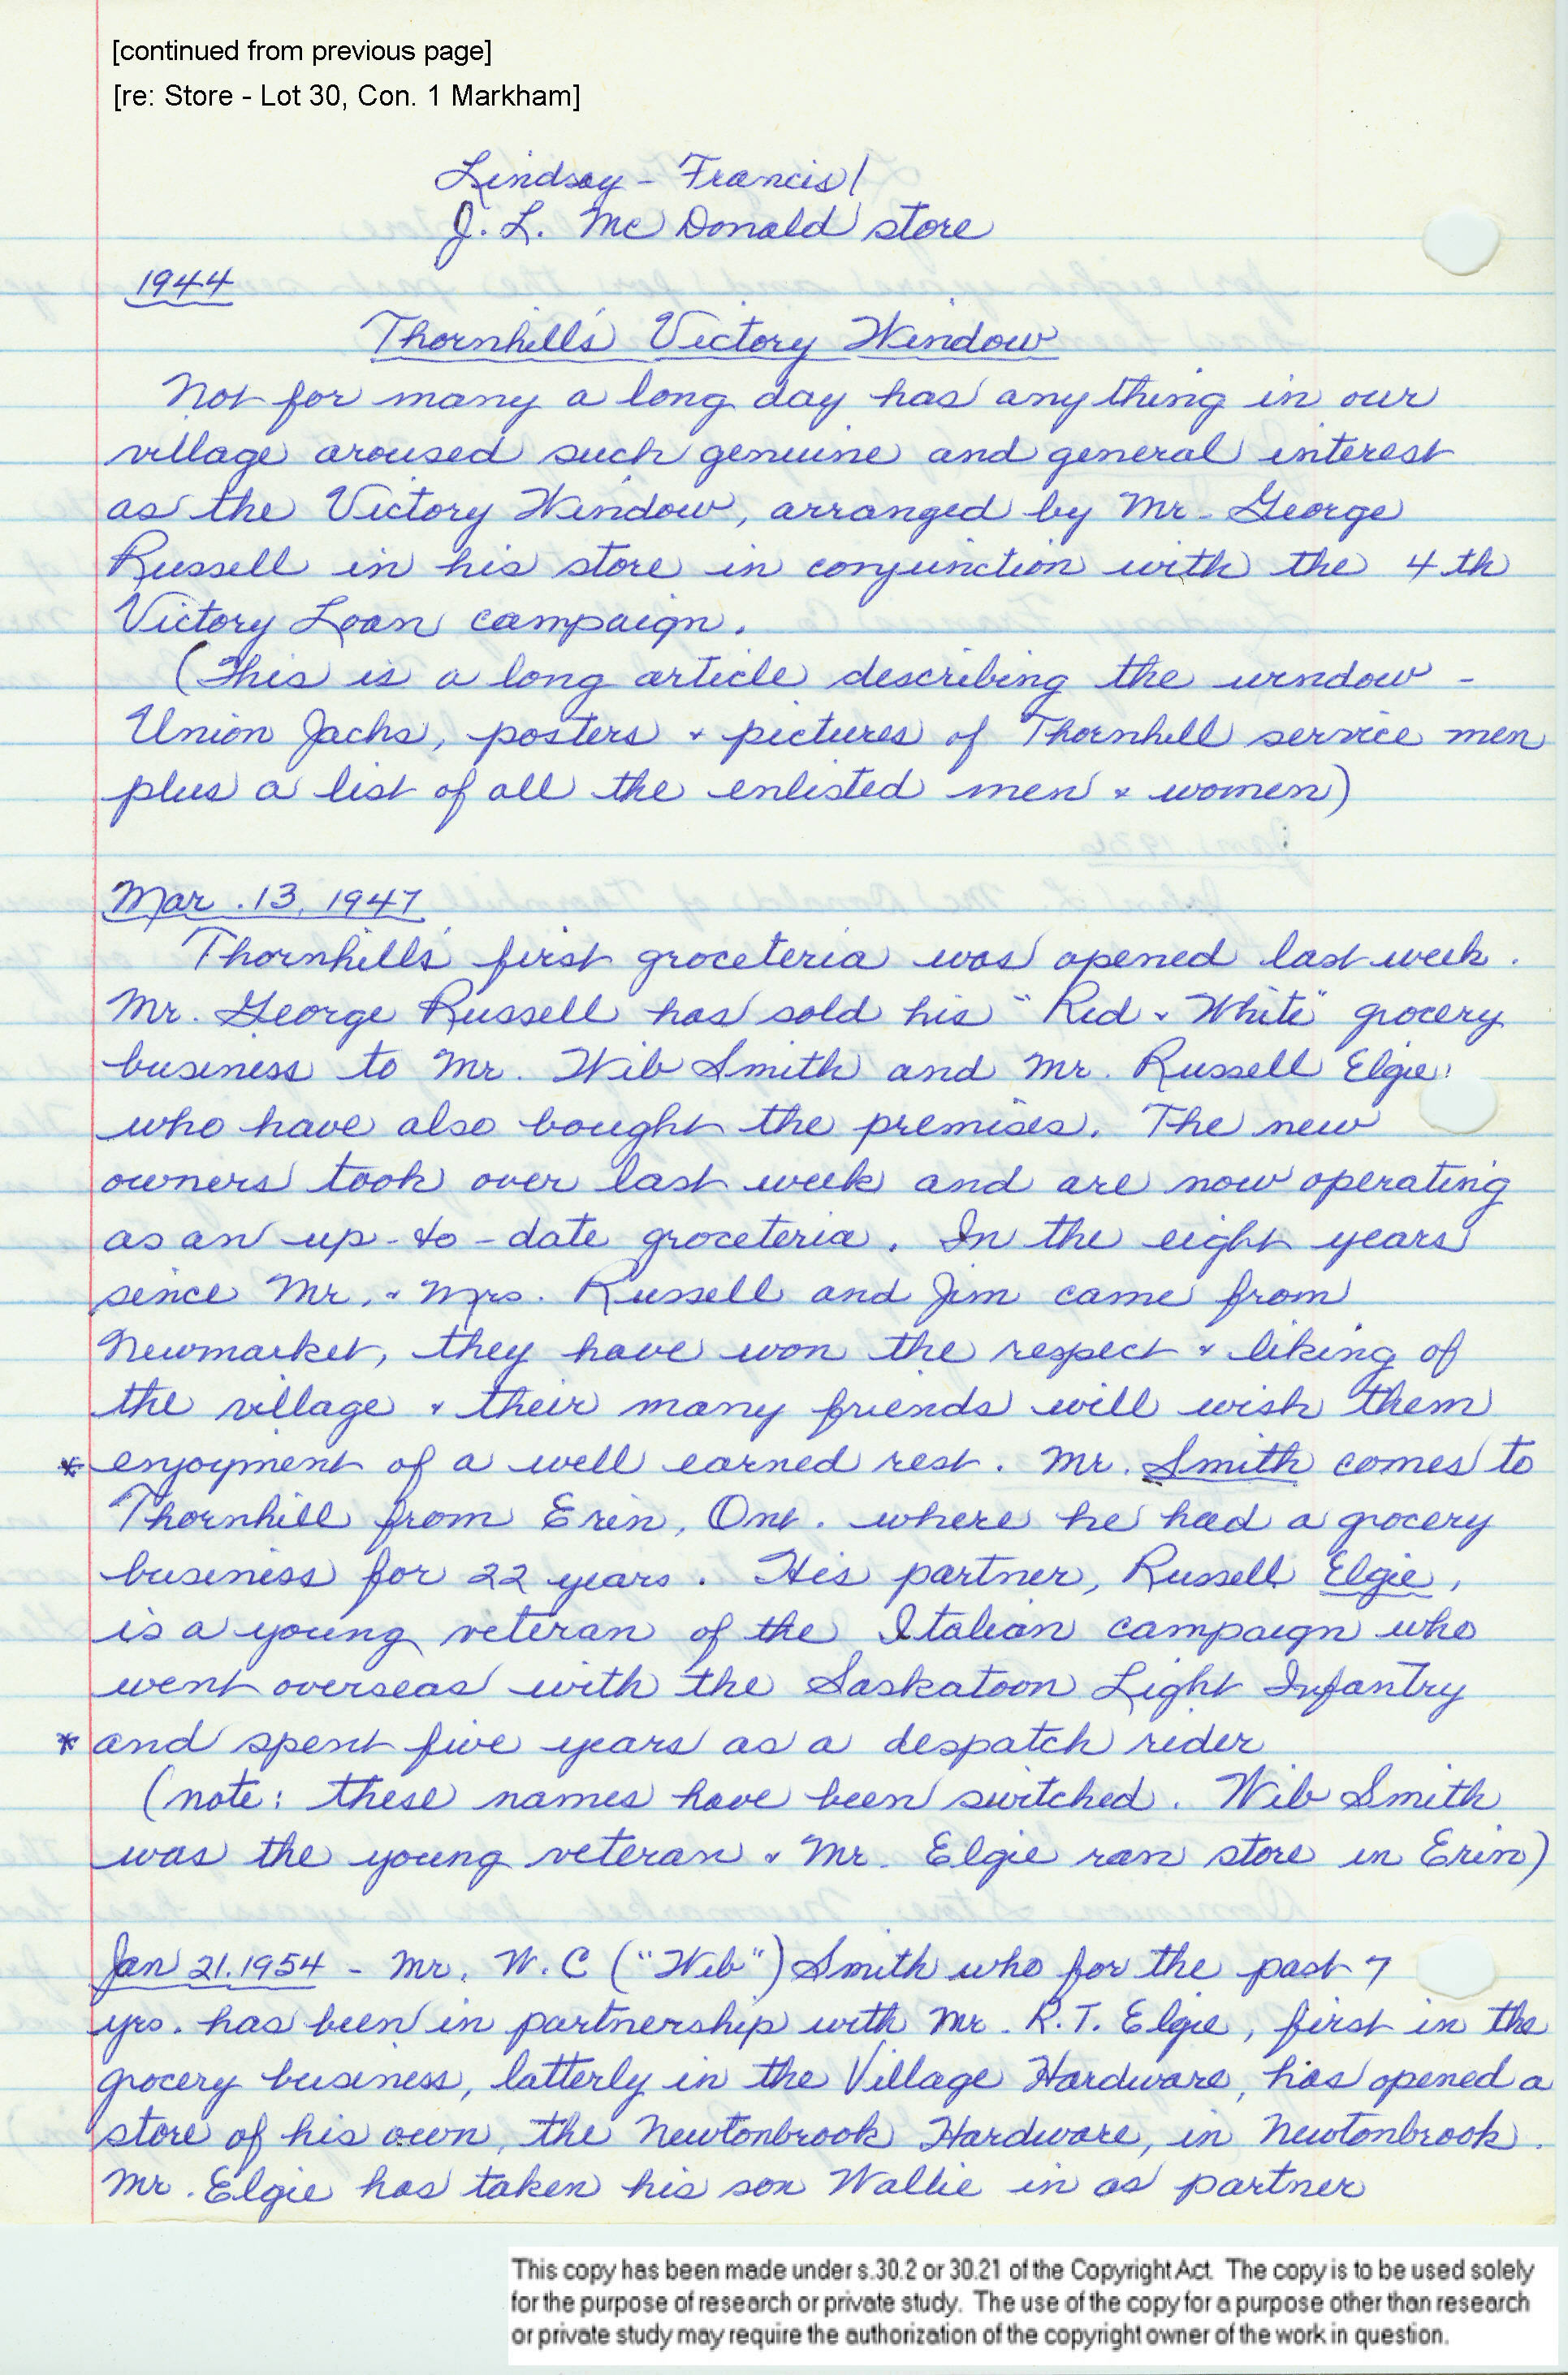 [continued from previous page]
[re: Store - Lot 30, Con. 1 Markham]
Lindsay - Francis/
J. L. McDonald store
1944
Thornhill's Victory Window
Not for many a long day has anything in our
village aroused such genuine and general interest
as the Victory Window, arranged by Mr. George
Russell in his store in conjunction with the 4th
Victory Loan campaign.
(This is a long article describing the window -
Union Jacks, posters & pictures of Thornhill service men
plus a list of all the enlisted men & women)
Mar. 13, 1947
Thornhill's first groceteria was opened last week.
Mr. George Russell has sold his "Red & White" grocery
business to Mr. Wib Smith and Mr. Russell Elgie
who have also bought the premises. The new
owners took over last week and are now operating
as an up-to-date groceteria. In the eight years
since Mr. & Mrs. Russell and Jim came from
Newmarket, they have won the respect & liking of
the village & their many friends will wish them
* enjoyment of a well earned rest. Mr. Smith comes to
Thornhill from Erin, Ont. where he had a grocery
business for 22 years. His partner, Russell Elgie,
is a young veteran of the Italian campaign who
went overseas with the Saskatoon Light Infantry
* and spent five years as a despatch rider
(note: these names have been switched. Wib Smith
was the young veteran & Mr. Elgie ran store in Erin)
Jan 21. 1954 - Mr. W. C ("Wib") Smith who for the past 7
yrs. has been in partnership with Mr. R. T. Elgie, first in the
grocery business, latterly in the Village Hardware, has opened a
store of his own, the Newtonbrook Hardware, in Newtonbrook.
Mr. Elgie has taken his son Wallie in as partner
This copy has been made under s.30.2 or 30.21 of the Copyright Act. The copy is to be used solely
for the purpose of research or private study. The use of the copy for a purpose other than research
or private study may require the authorization of the copyright owner of the work in question.